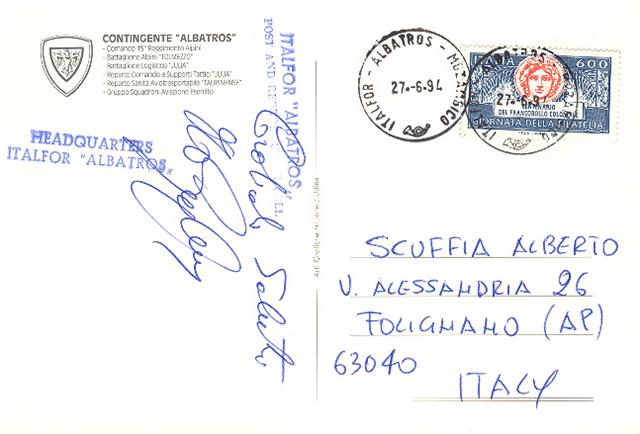 CONTINGENTE "ALBATROS"
- Comando 15° Reggimento Alpini
- Battaglione Alpini "TOLMEZZO"
- Battaglione Logistico "JULIA"
- Reparto Comando e Supporti Tattici "JULIA"
- Reparto Sanità Aviotrasportabile "TAURINENSE"
- Gruppo Squadroni Aviazione Esercito
HEADQUARTERS
ITALFOR "ALBATROS"
ITALFOR "ALBATROS"
POST AND
Saluti
ITALFOR - ALBATROS - MOZAMBICO
27-6-94
600
27-6-94
CENTENARIO
DEL FRANCOBOLLO
GIORNATA DELLA FILATELIA
SCUFFIA ALBERTO
V. ALESSANDRIA 26
FOLIGNANO (AP)
63040
ITALY